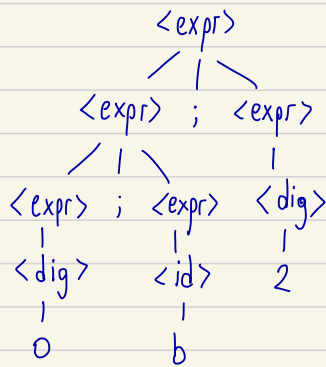 <expr>
<expr> ; <expr>
<expr> ; <expr> <dig>
<dig> <id> 2
0 b